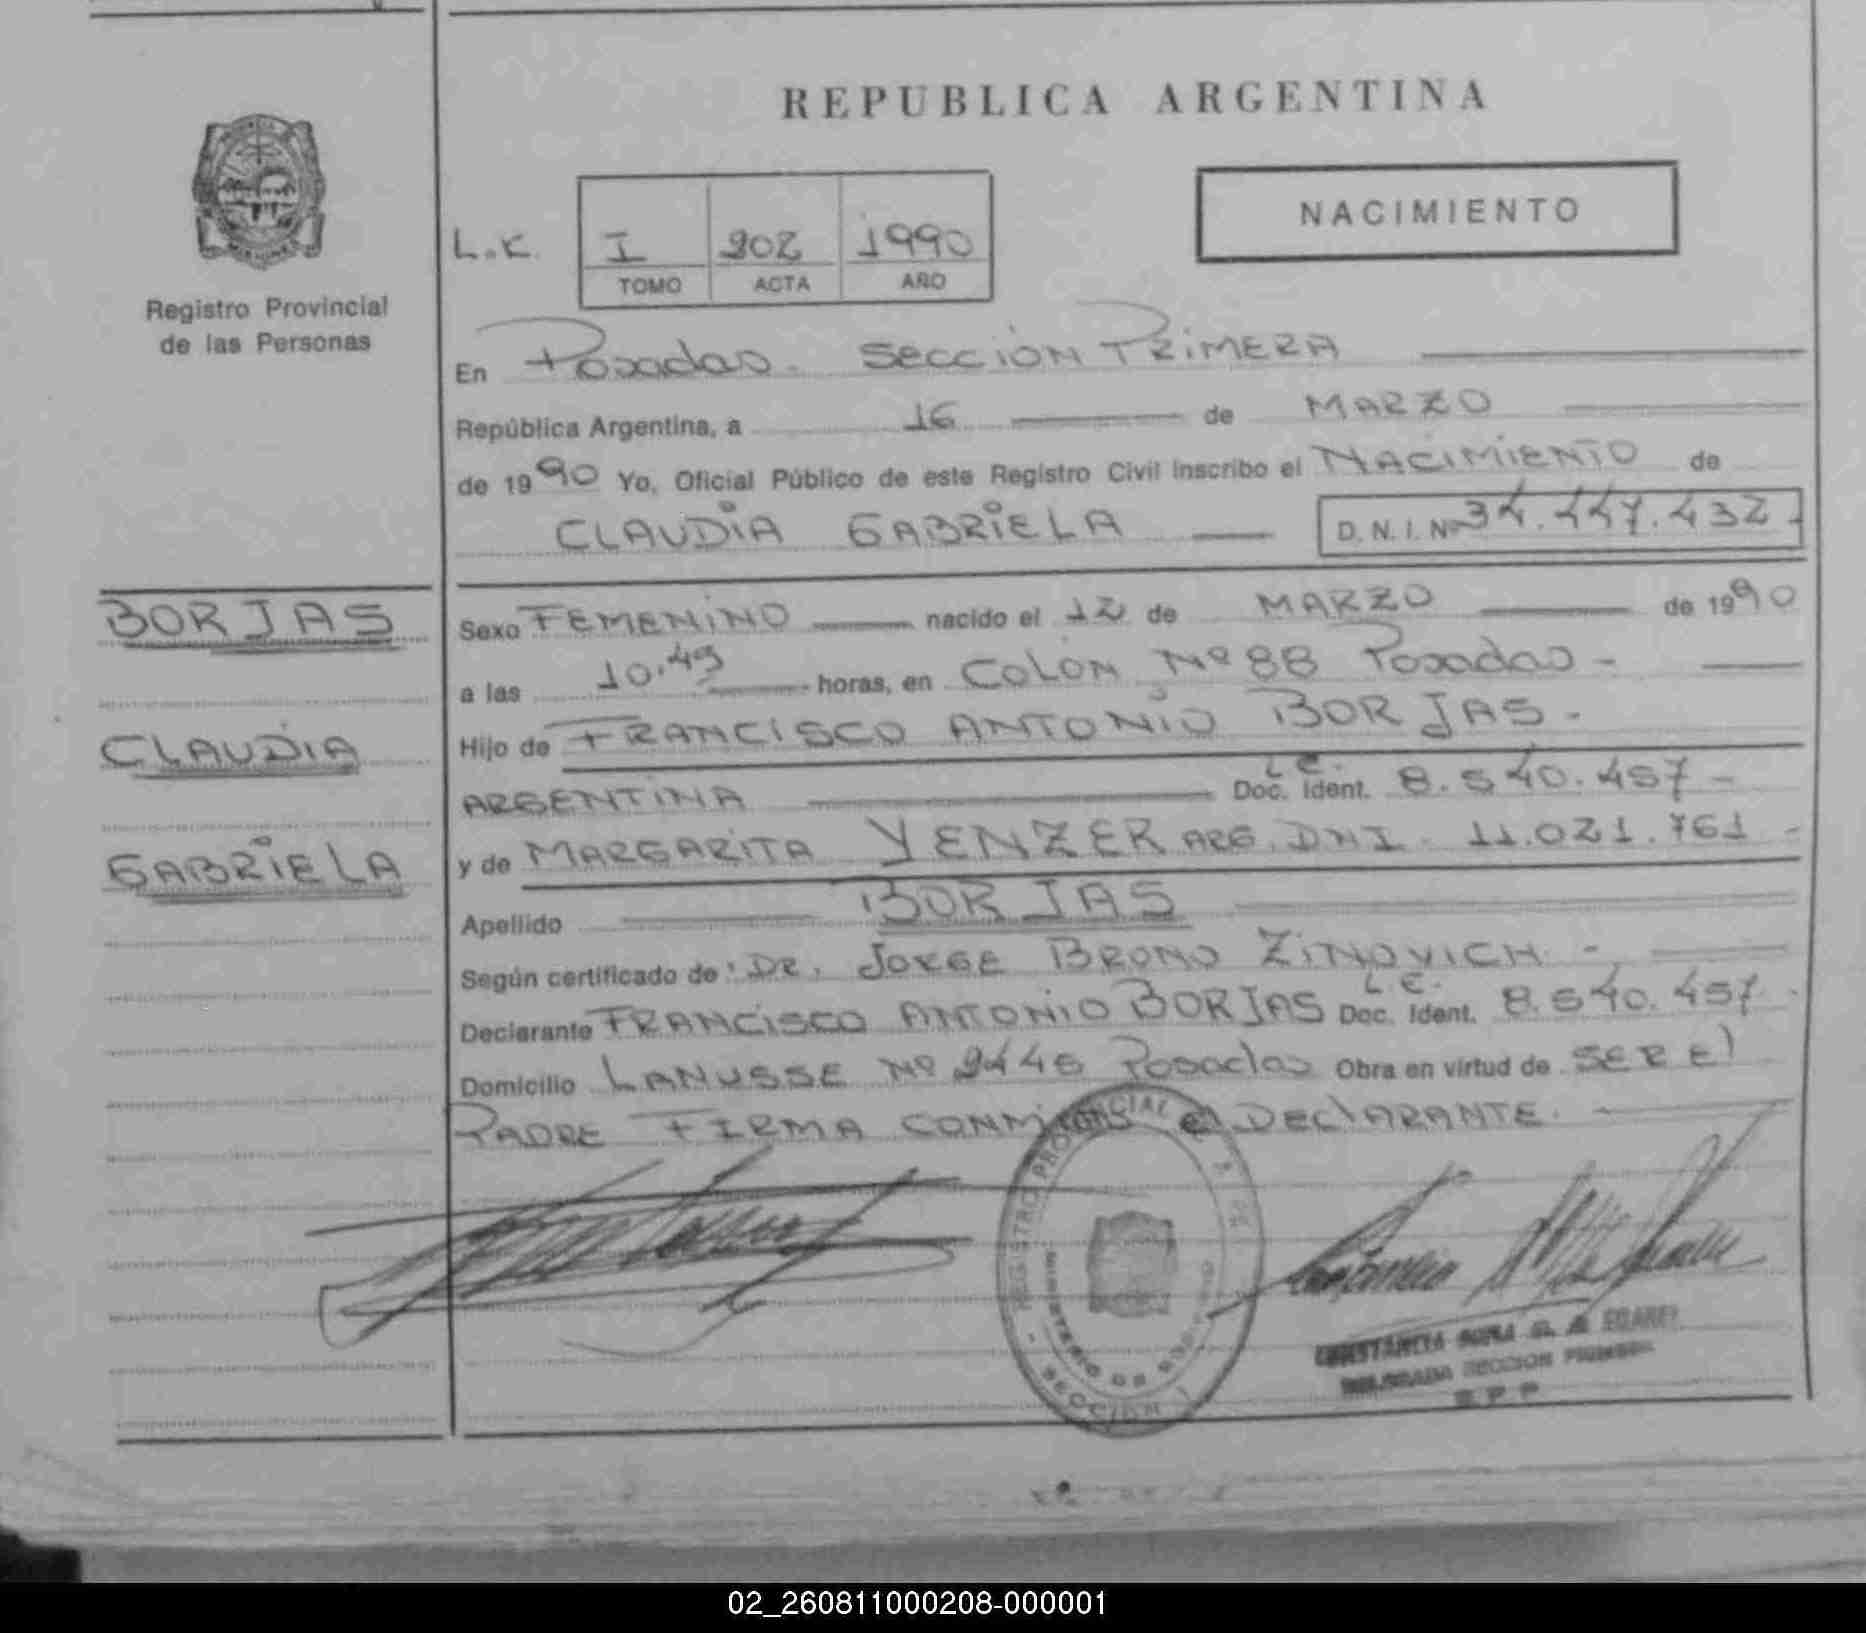 REPUBLICA ARGENTINA
NACIMIENTO
L.K. I 902 1990
TOMO ACTA AÑO
Registro Provincial
de las Personas
En Posadas. Sección Primera
República Argentina, a 16 de MARZO
de 1990 Yo, Oficial Público de este Registro Civil inscribo el NACIMIENTO de
CLAUDIA GABRIELA D.N.I. Nº 34.447.432-
BORJAS
CLAUDIA
GABRIELA
Sexo FEMENINO nacido el 12 de MARZO de 1990
a las 10.49 horas, en COLÓN Nº 88 Posadas -
Hijo de FRANCISCO ANTONIO BORJAS -
ARGENTINA L.E. Doc. Ident. 8.540.457 -
y de MARGARITA YENZER ARG. DNI. 11.021.761 -
Apellido BORJAS
Según certificado de: DR. JORGE BRUNO ZINOVICH. -
Declarante FRANCISCO ANTONIO BORJAS L.E. Doc. Ident. 8.540.457 -
Domicilio LANUSSE Nº Posadas Obra en virtud de SER El
PADRE FIRMA CONMIGO el DEClARANTE.
REGISTRO PROVINCIAL DE
MINISTERIO DE
SECCION
SECCION
02_260811000208-000001